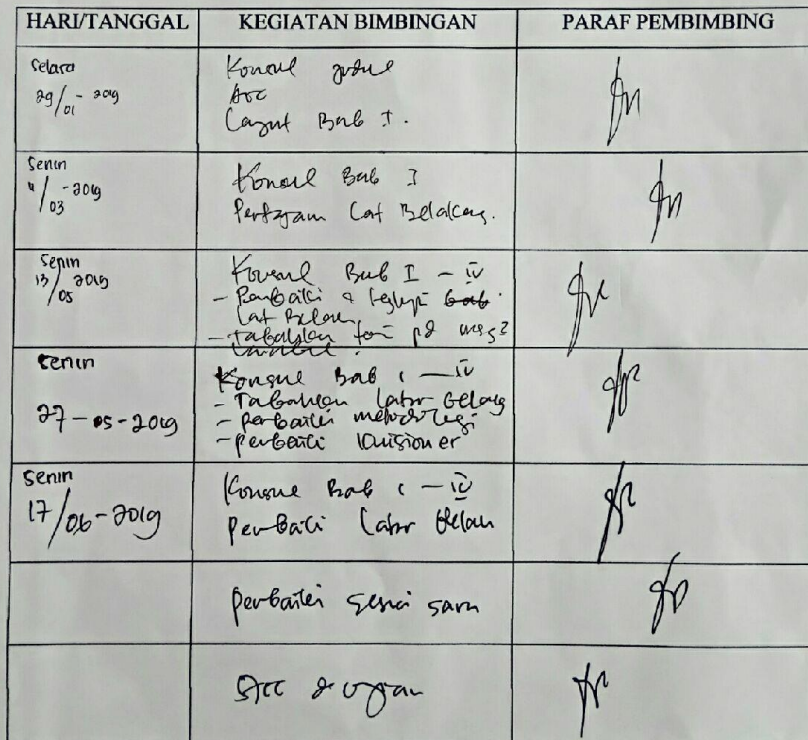 HARI/TANGGAL KEGIATAN BIMBINGAN PARAF PEMBIMBING
Selasa
29/01-2019
Konsul judul
Acc
Lanjut Bab I.
Senin
4/03-2019
Konsul Bab I
Pertajam Lat Belakang.
Senin
13/05 2019
Konsul Bab I - IV
- Perbaiki &
Lat Belakang
- Tabahkan
Senin
27-05-2019
Konsul Bab I - IV
- Tabahkan latar belang
- perbaiki metodologi
- perbaiki kuisioner
Senin
17/06-2019
Konsul Bab I - IV
Perbaiki latar
perbaiki sesuai saran
Acc di ujian